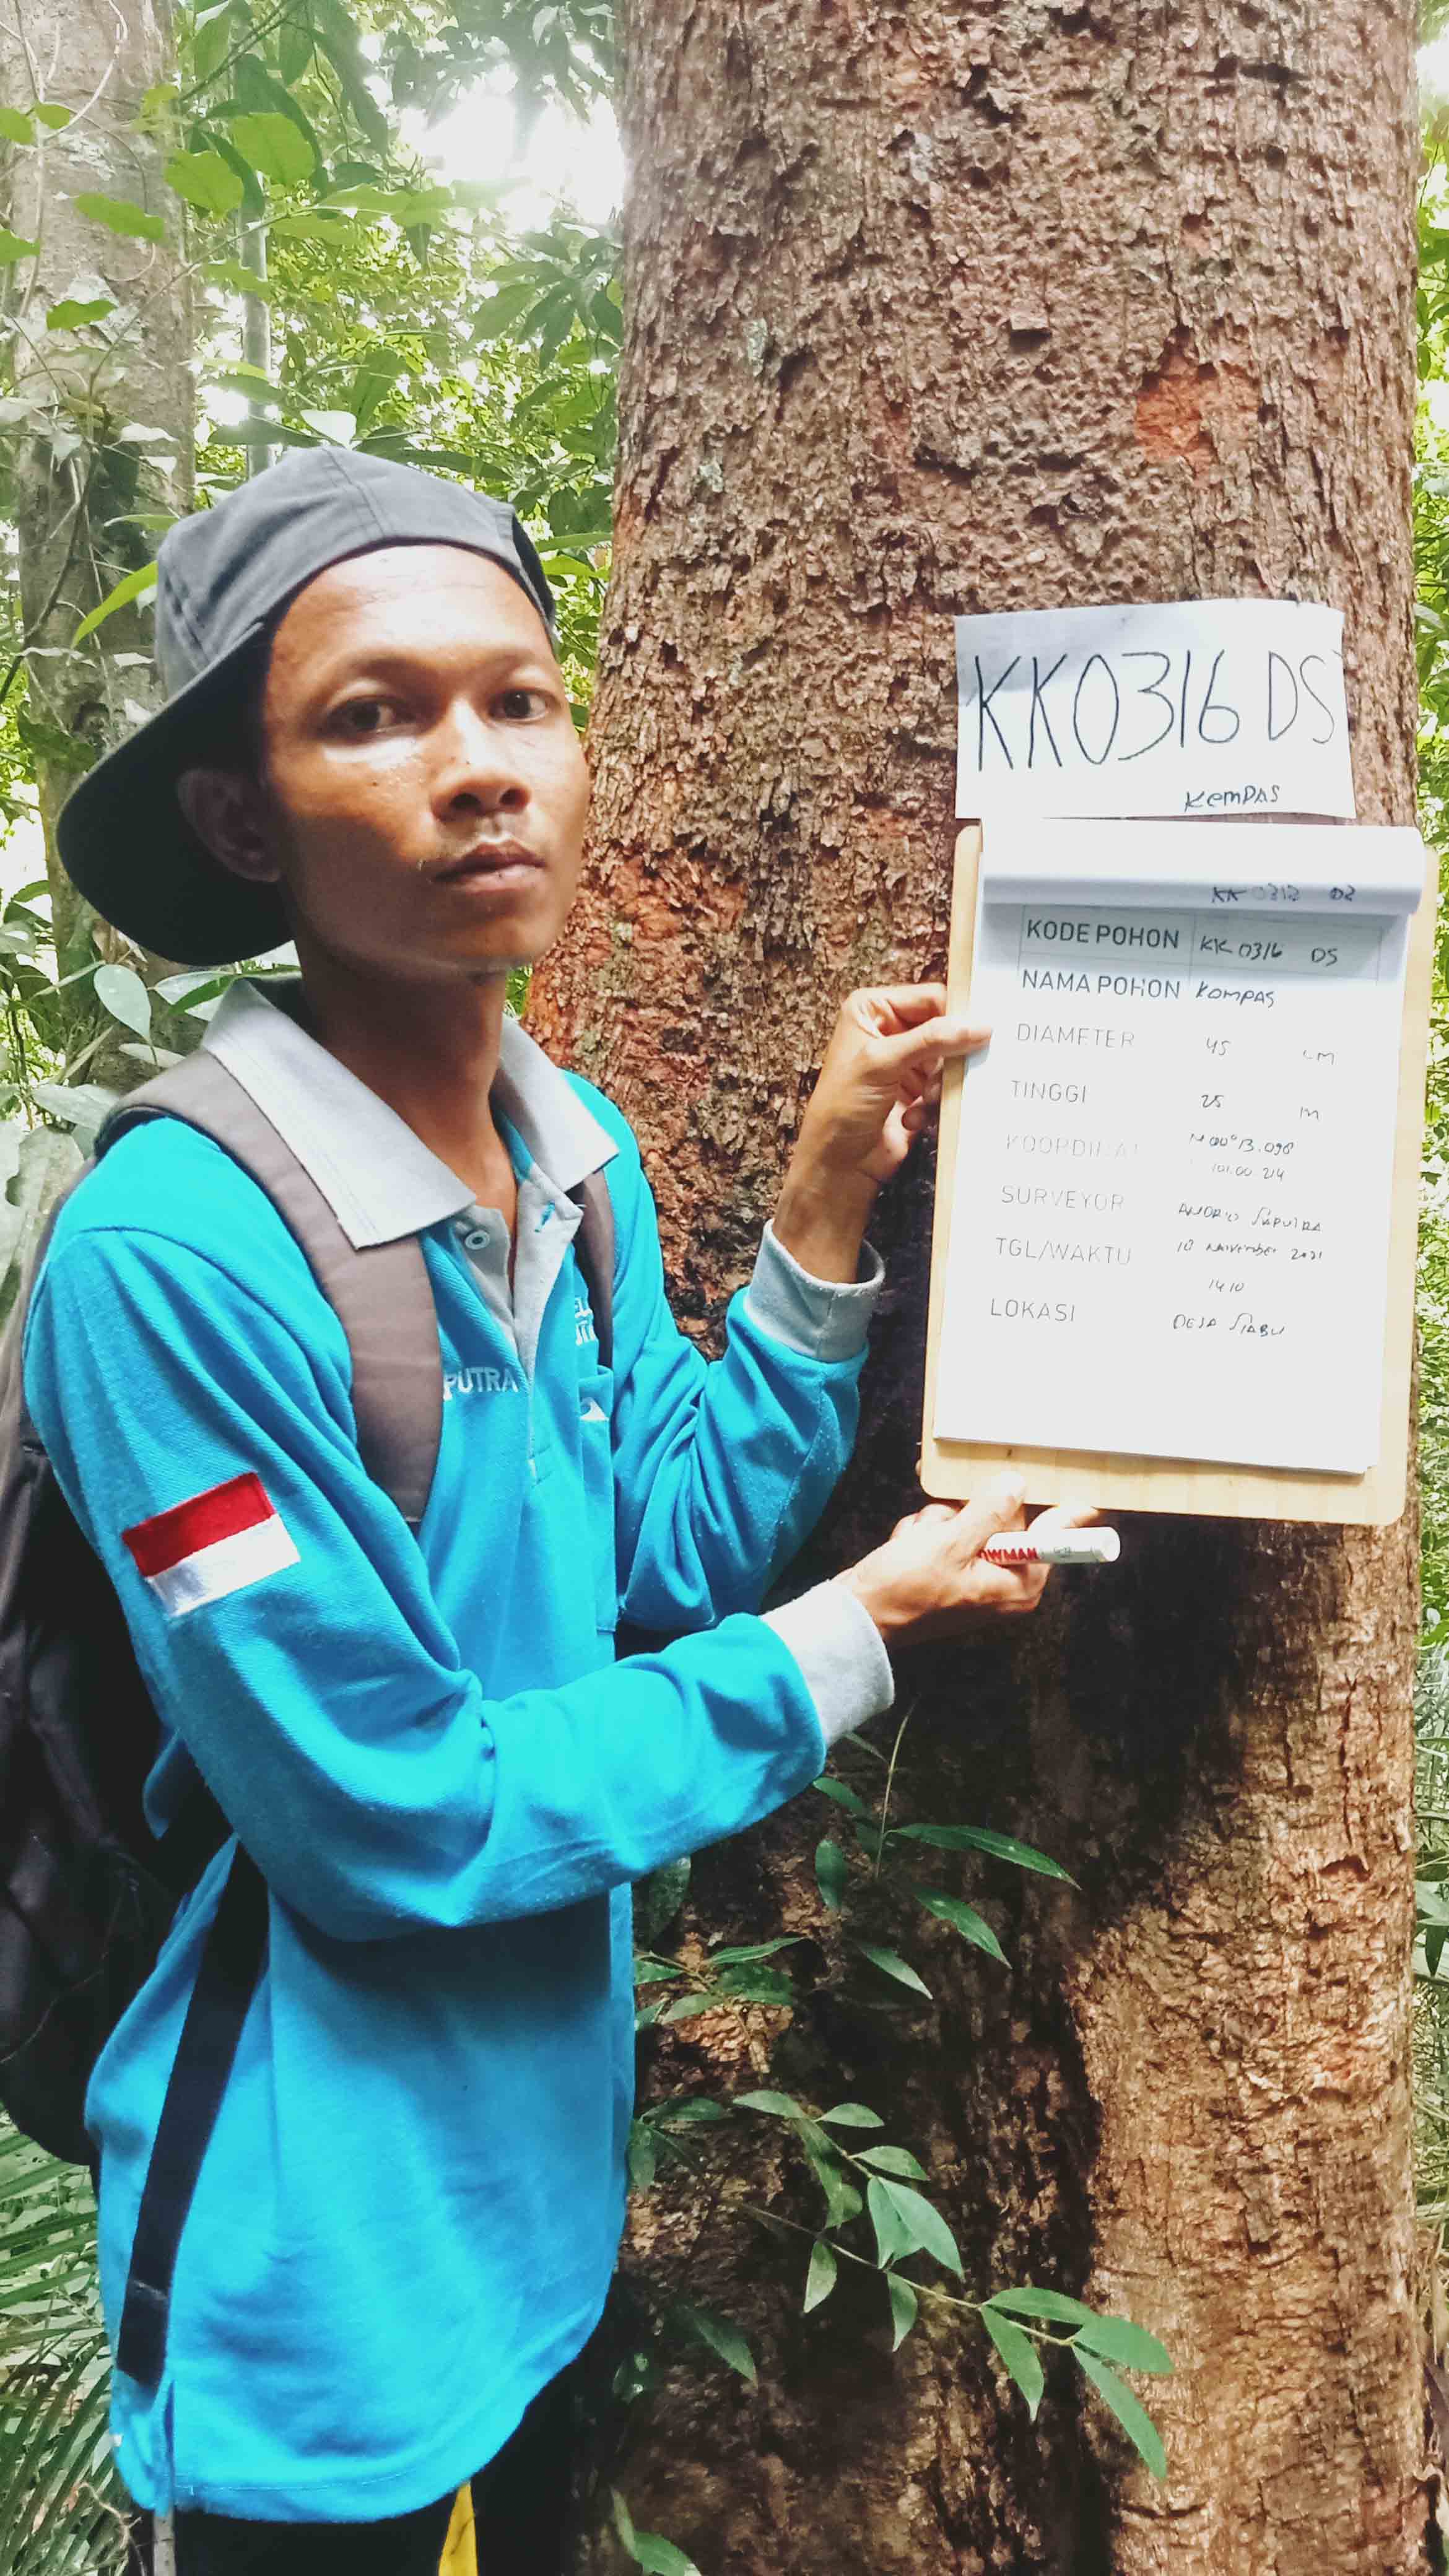 KK0316 DS
KemPAS
KK 0313 DS
KODE POHON KK 0316 DS
NAMA POHON KOMPAS
DIAMETER 45 cm
TINGGI 25 m
KOORDINAT N 00° 13.098
101.00 214
SURVEYOR ANDRIO SAPUTRA
TGL/WAKTU 10 November 2021
14 10
LOKASI DESA SIABU
PUTRA
OWMAN